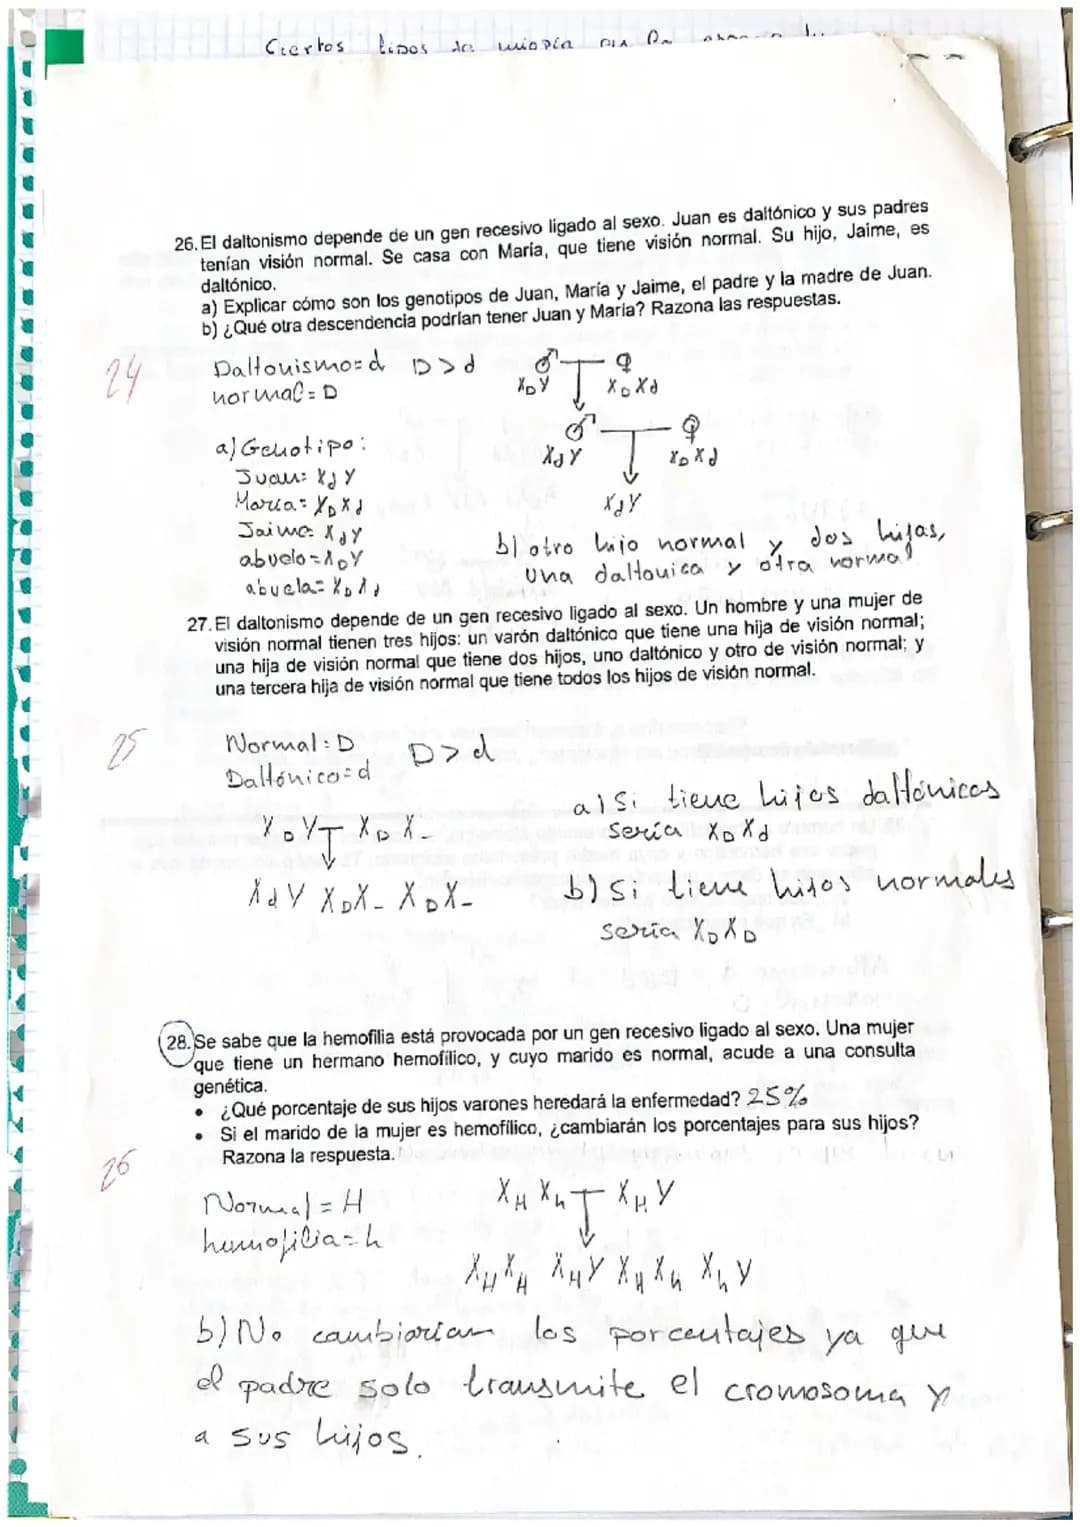 Ciertos tipos de miopía
26. El daltonismo depende de un gen recesivo ligado al sexo. Juan es daltónico y sus padres
tenían visión normal. Se casa con María, que tiene visión normal. Su hijo, Jaime, es
daltónico.
a) Explicar cómo son los genotipos de Juan, María y Jaime, el padre y la madre de Juan.
b) ¿Qué otra descendencia podrían tener Juan y María? Razona las respuestas.
24
Daltonismo=d D>d
normal=D
♂ ♀
XDY XDXd
♂ ♀
XdY XDXd
XdY
a) Genotipo:
Juan: XdY
María= XDXd
Jaime: XdY
abuelo=XDY
abuela=XDXd
b) otro hijo normal y dos hijas,
una daltonica y otra normal
27. El daltonismo depende de un gen recesivo ligado al sexo. Un hombre y una mujer de
visión normal tienen tres hijos: un varón daltónico que tiene una hija de visión normal;
una hija de visión normal que tiene dos hijos, uno daltónico y otro de visión normal; y
una tercera hija de visión normal que tiene todos los hijos de visión normal.
25
Normal=D D>d
Daltónico=d
XDY XDX-
XdY XDX- XDX-
a) Si tiene hijos daltónicos
sería XDXd
b) Si tiene hijos normales
sería XDXD
28. Se sabe que la hemofilia está provocada por un gen recesivo ligado al sexo. Una mujer
que tiene un hermano hemofílico, y cuyo marido es normal, acude a una consulta
genética.
• ¿Qué porcentaje de sus hijos varones heredará la enfermedad? 25%
• Si el marido de la mujer es hemofílico, ¿cambiarán los porcentajes para sus hijos?
Razona la respuesta.
26
Normal=H
hemofilia=h
XHXh XHY
XHXH XHY XHXh XhY
b) No cambiarían los porcentajes ya que
el padre solo transmite el cromosoma Y
a sus hijos.